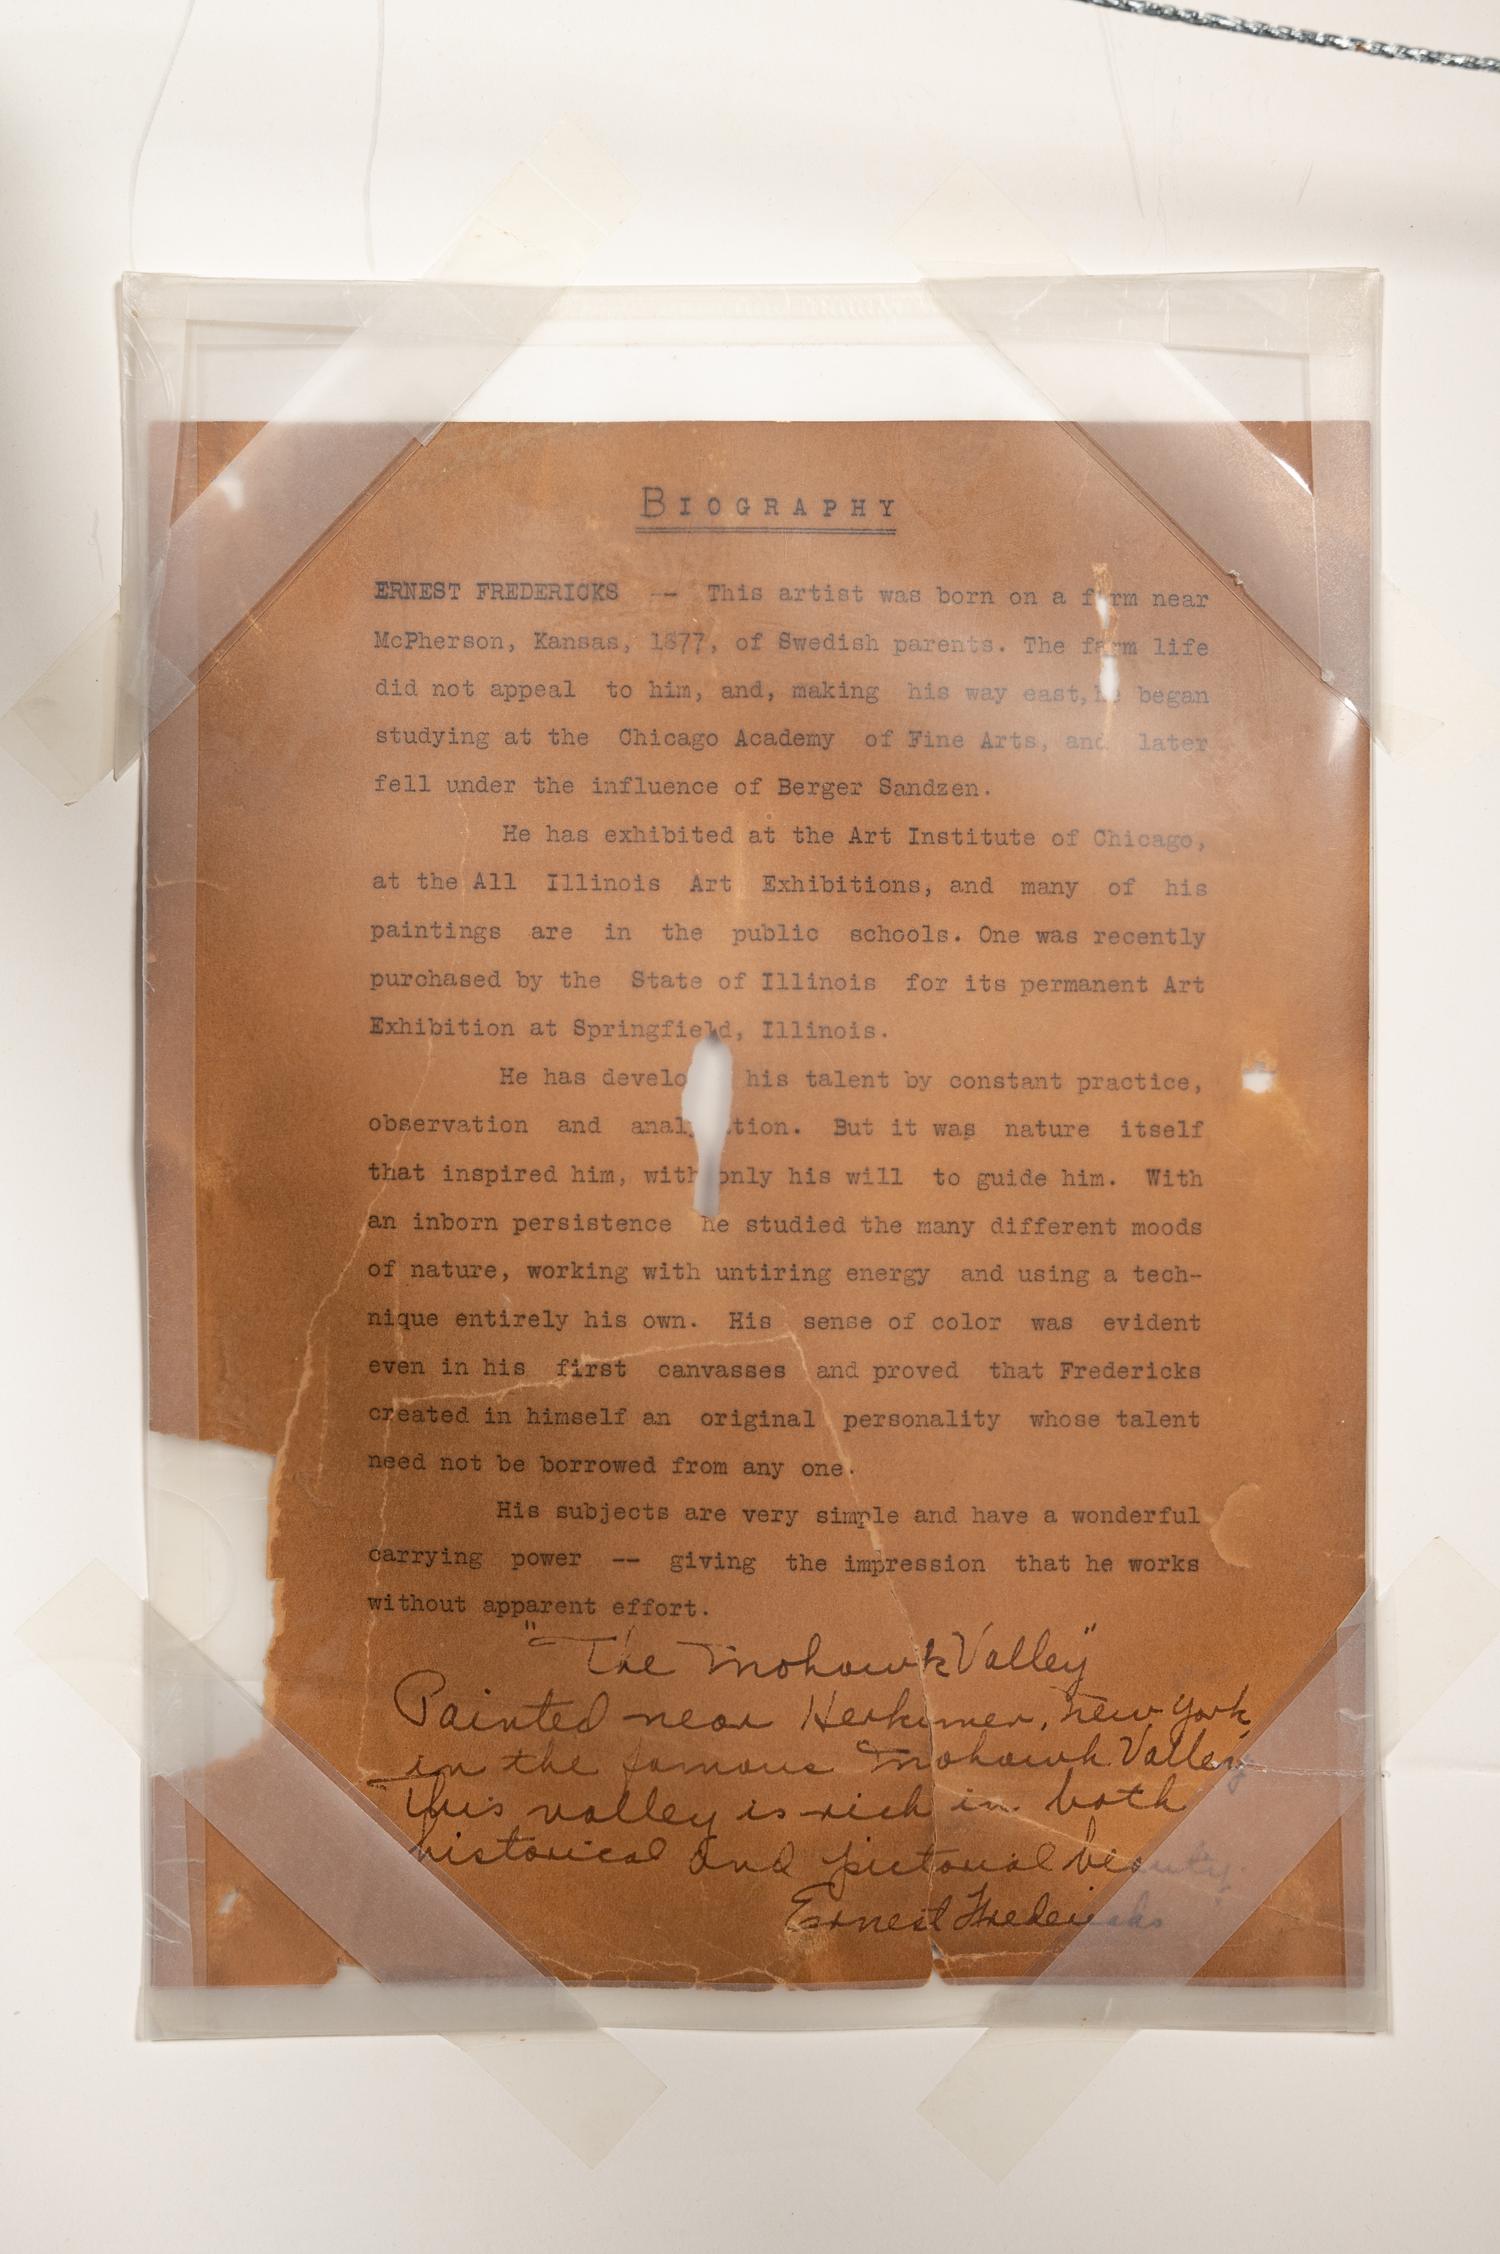 BIOGRAPHY
ERNEST FREDERICKS -- This artist was born on a farm near
McPherson, Kansas, 1877, of Swedish parents. The farm life
did not appeal to him, and, making his way east, he began
studying at the Chicago Academy of Fine Arts, and later
fell under the influence of Berger Sandzen.
He has exhibited at the Art Institute of Chicago,
at the All Illinois Art Exhibitions, and many of his
paintings are in the public schools. One was recently
purchased by the State of Illinois for its permanent Art
Exhibition at Springfield, Illinois.
He has develo his talent by constant practice,
observation and tion. But it was nature itself
that inspired him, with only his will to guide him. With
an inborn persistence he studied the many different moods
of nature, working with untiring energy and using a tech-
nique entirely his own. His sense of color was evident
even in his first canvasses and proved that Fredericks
created in himself an original personality whose talent
need not be borrowed from any one.
His subjects are very simple and have a wonderful
carrying power -- giving the impression that he works
without apparent effort.
"The Mohawk Valley"
Painted near Herkimer, New York
in the famous Mohawk Valley
this valley is rich in both
historical and pictorial beauty.
Ernest Fredericks